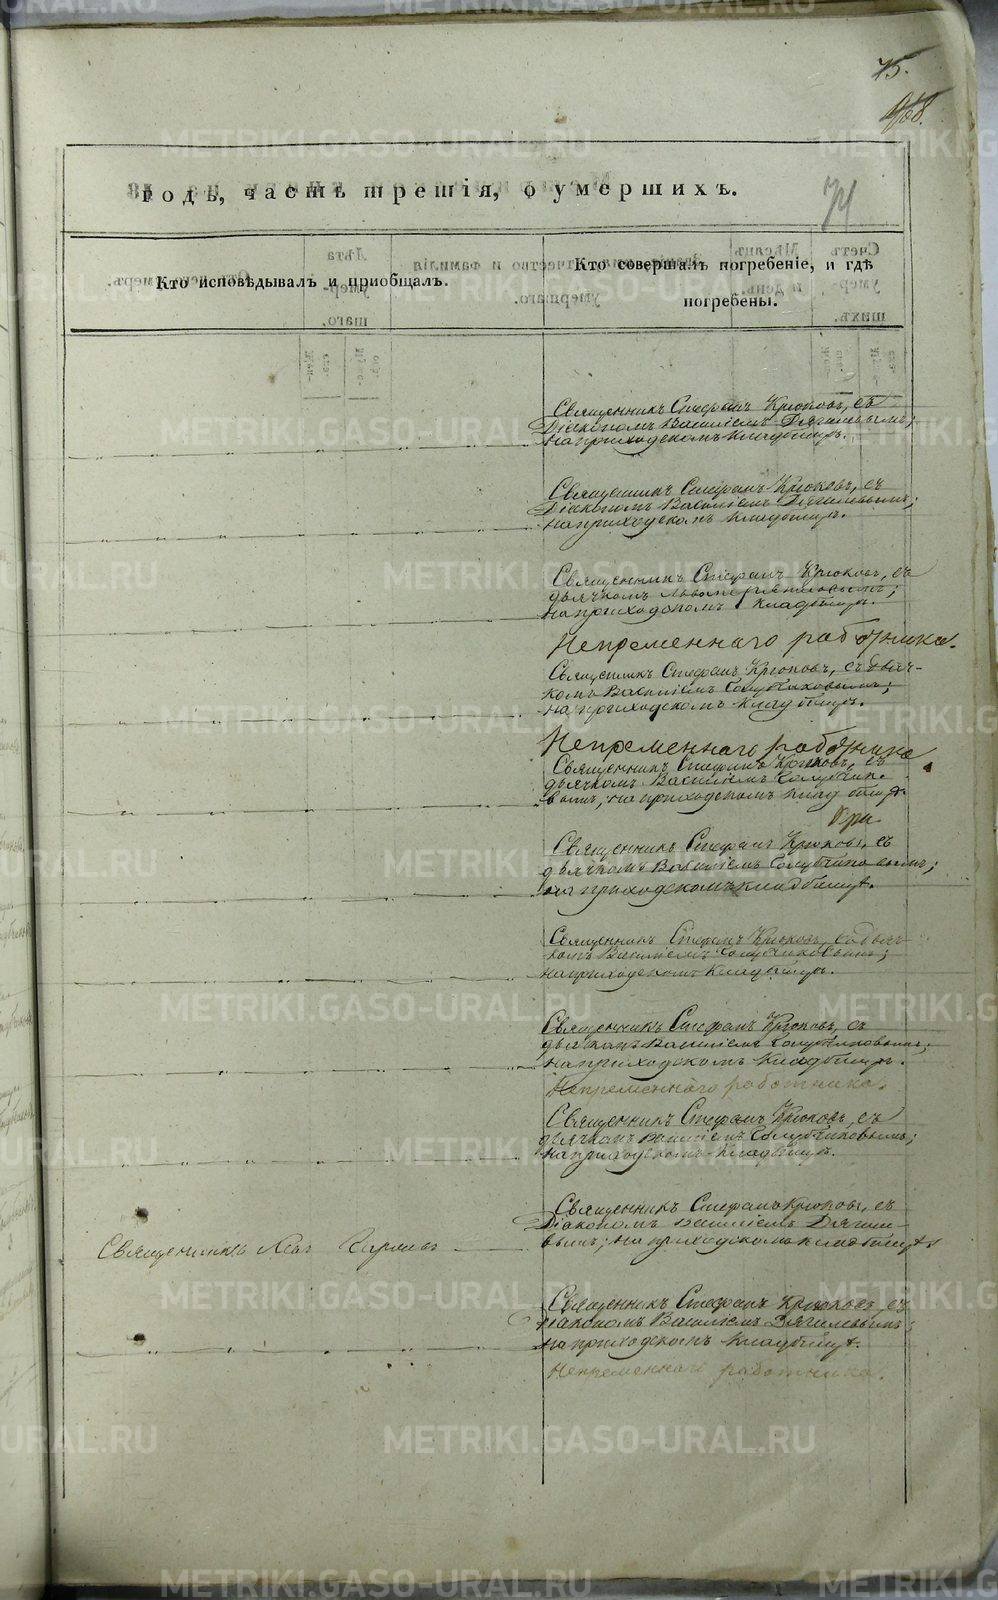 75.
968.
74
годъ, часть третія, о умершихъ.
Кто исповѣдывалъ и приобщалъ.
Кто совершалъ погребеніе, и гдѣ
погребены.
Священникъ Стефанъ Крюковъ, съ
Діакономъ Василіемъ Дягилевымъ;
на приходскомъ кладбищѣ.
Священникъ Стефанъ Крюковъ, съ
Діакономъ Василіемъ Дягилевымъ;
на приходскомъ кладбищѣ.
Священникъ Стефанъ Крюковъ, съ
дьячкомъ
на приходскомъ кладбищѣ.
Непременнаго работника.
Священникъ Стефанъ Крюковъ, съ дьяч-
комъ Василіемъ Голубчиковымъ;
на приходскомъ кладбищѣ.
Непременнаго работника
Священникъ Стефанъ Крюковъ, съ
дьячкомъ Василіемъ Голубчико-
вымъ, на приходскомъ кладбищѣ
Священникъ Стефанъ Крюковъ, съ
дьячкомъ Василіемъ Голубчиковымъ;
на приходскомъ кладбищѣ.
Священникъ Стефанъ Крюковъ, съ дьяч-
комъ Василіемъ Голубчиковымъ;
на приходскомъ кладбищѣ.
Священникъ Стефанъ Крюковъ, съ
дьячкомъ Василіемъ Голубчиковымъ;
на приходскомъ кладбищѣ.
Непременнаго работника.
Священникъ Стефанъ Крюковъ, съ
дьячкомъ Василіемъ Голубчиковымъ;
на приходскомъ кладбищѣ.
Священникъ Левъ
Священникъ Стефанъ Крюковъ, съ
Діакономъ Василіемъ Дягиле-
вымъ; на приходскомъ кладбищѣ
Священникъ Стефанъ Крюковъ, съ
Діакономъ Василіемъ Дягилевымъ;
на приходскомъ кладбищѣ.
Непременнаго работника.
METRIKI.GASO-URAL.RU